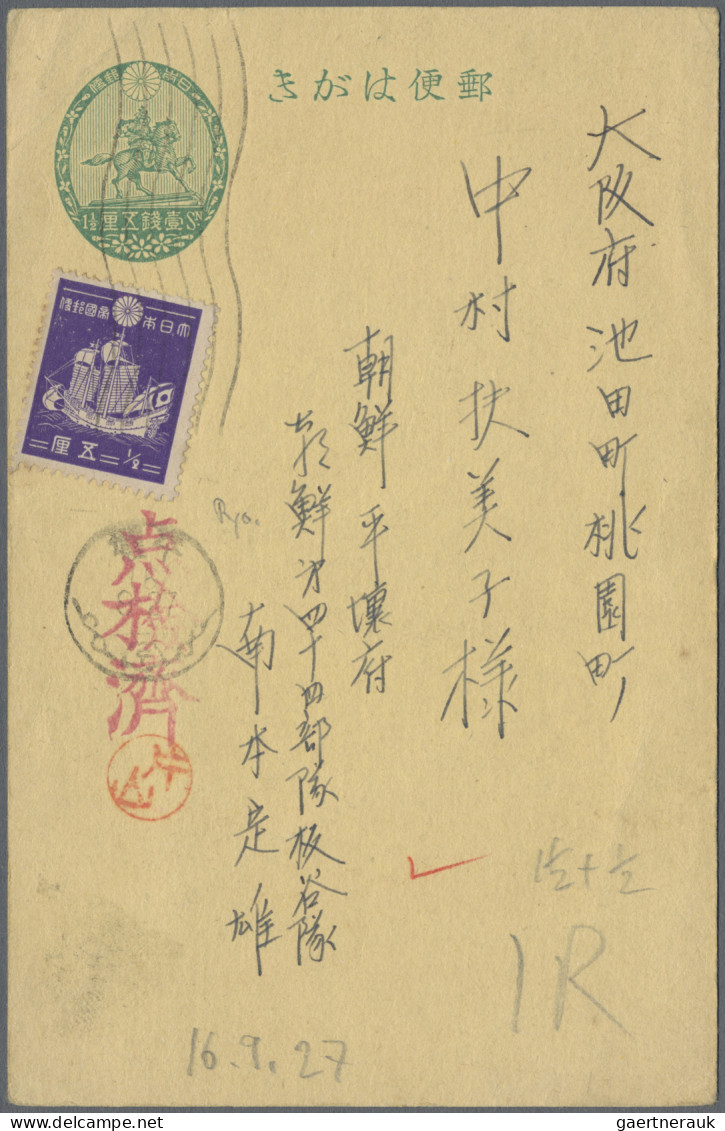 郵便はがき
壹錢五厘
1½ Sn
大日本帝國郵便
五厘
½
大阪府池田町桃園町
中村扶美子様
朝鮮平壤府
朝鮮第四十四部隊板谷隊
南本定雄
点検済
1½+½
1R
16.9.27
delcampe.net
gaertnerauk